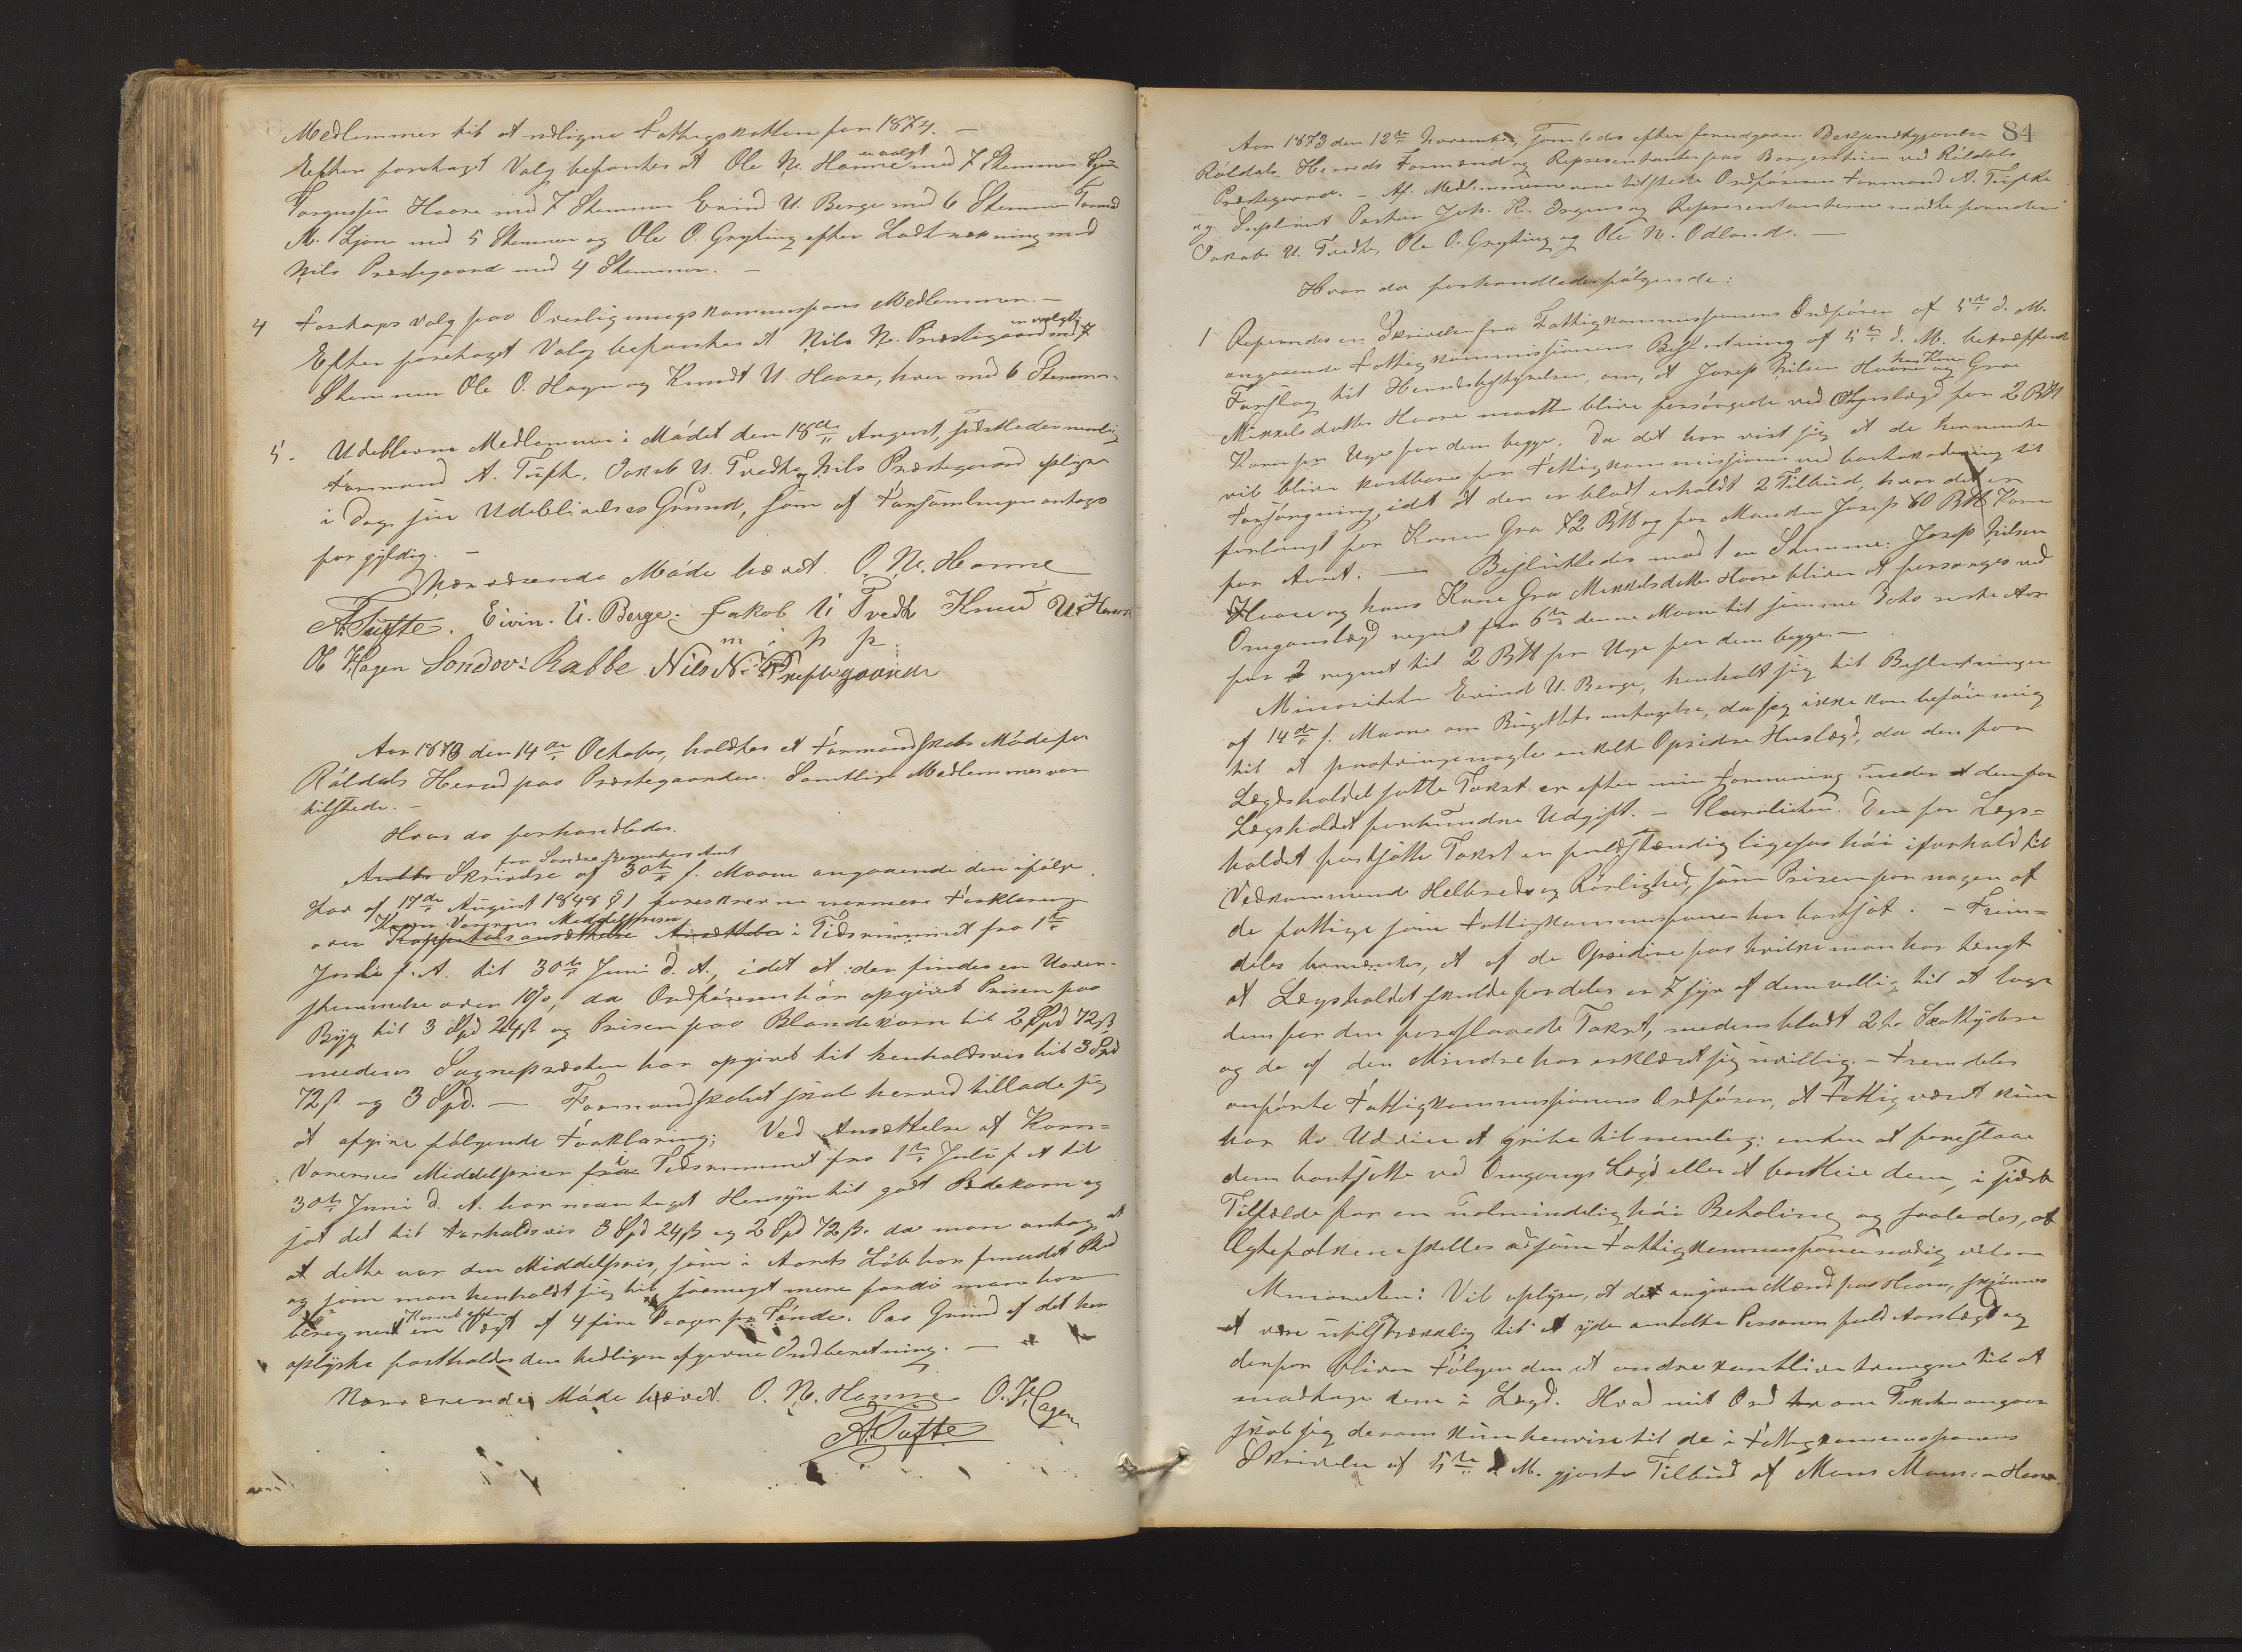 Medlemmer til at udligne Fattigskatten for 1874. —
Efter foretaget Valg befantes at Ole N. Hamre er valgt med 7 Stemmer
Torgussen Haare med 7 Stemmer Eivind U. Berge med 6 Stemmer Tormod
M. Ljone med 5 Stemmer og Ole O. Gryting efter Lodtrækning med
Nils Prestegaard med 4 Stemmer. —
4 Foretages valg paa Overligningskommissions Medlemmer. —
Efter foretaget Valg befantes at Nils N. Præstegaard er valgt med 7
Stemmer Ole O. Hagen og Knudt U. Haare, hver med 6 Stemmer.
5. Udeblevne Medlemmer i Mødet den 18de August, sidstleden nemlig
Formand A. Tufte, Jakob U. Tvedte og Nils Præstegaard oplyser
i Dag sin Udeblivelses Grund, som af Forsamlingen antoges
for gyldig. —
Nærværende Møde hævet. O. N. Hamre
A. Tufte. Eivin. U. Berge. Jakob U Tvedt Knud U. Haare
m i p p.
Ol Hagen Sondov: Rabbe Nils N. Prestegaard
Aar 1873 den 14de October, holdtes et Formandskabs Møde for
Røldals Herred paa Præstegaarden. Samtlige Medlemmer var
tilstede. —
Hvor da forhandledes.
Amtets Skrivelse fra Søndre Bergenhus Amt af 30te f. Maane angaaende den ifølge
Lov af 17de August 1848 § 1 foreskrevne nærmere Forklaring
over Korn Varernes Middelpriser Kapitelsansættelse Ansættelse i Tidsrummet fra 1te
Juli f. A. til 30te Juni d. A., idet at der findes en Uoverens-
stemmelse over 10%, da Ordføreren har opgivet Prisen paa
Byg til 3 Spd 24 ß og Prisen paa Blandekorn til 2 Spd 72 ß
medens Sognepræsten har opgivet til henholdsvis til 3 Spd
72 ß. og 3 Spd. — Formandskabet skal herved tillade sig
at afgive følgende Forklaring; Ved Ansættelse af Korn-
Varernes Middelpriser fra i Tidsrummet fra 1te Juli f. A til
30te Juni d. A. har man taget Hensyn til godt Bødekorn og
sat det til Forholdsvis 3 Spd 24 ß og 2 Spd 72 ß. da man antog at
at dette var den Middelpris, som i Aarets Løb har fundet Sted
og som man henholdt sig til, saameget mere fordi man har
beregnet Kornet efter en Vægt af 4 fire Vaager pr Tønde. Paa Grund af det her
oplyste fastholdes den tidligere afgivne Indberetning. —
Nærværende Møde hævet. O. N. Hamre O. Hagen
A. Tufte
84
Aar 1873 den 12te November, samledes efter forudgaaen Bekjendtgjørelse
Røldals Herreds Formænd og Repræsentanter paa Borgerstuen ved Røldals
Præstegaard. — Af Medlemmerne vare tilstede Ordføreren Formand A. Tufte
og Suplient Pastor Joh. K. Irgens og Repræsentanterne mødte foruden
Jakob U. Tvedte, Ole O. Gryting og Ole N. Odland. —
Hvor da forhandledes følgende:
1 Refereredes en Skrivelse fra Fattigkommissionens Ordfører af 5te d. M.
angaaende Fattigkommissionens Beslutning af 5te d. M. betræffende
Forslag til Herredsbestyrelsen, om, at Josep Nilsen Haare og hans Kone Groe
Mikkelsdatter Haare maatte blive forsørgede ved Omgangslægd for 2 B℔
Korn pr Uge for dem begge. Da det har vist sig at de henseende
vil blive kostbare for Fattigkommissionen ved bortakodering til
Forsørgning, idet at den er blodt erholdt 2 Tilbud, hvor det er
forlangt for Konen Gro 72 B℔ og for Manden Josep 60 B℔ Korn
for Aaret. — Besluttedes mod 1 en Stemme: Josep Nilsen
Haare og hans Kone Gro Mikkelsdatter Haare bliver at forsørges ved
Omgangslægd regnet fra 6te denne Maane til samme Dato næste Aar
for 2 regnet til 2 B℔ pr Uge for dem begge. —
Minoriteten Eivind U. Berge, henholdt sig til Beslutningen
af 14de f. Maane om Budgettets antagelse, da jeg ikke kan beføie mig
til at paatvinge nogle enkelte Opsidere Huslægd, da den for
Lægdsholdet satte Takst er efter min Formening under at den for
Lægsholdet forbundne Udgift. — Pluraliteten. Den for Lægs-
holdet fastsatte Takst er fuldstændig ligesaa høi i forhold til
Vedkommende Helbreds og Rørlighed, som Prisen for nogen af
de fattige som Fattigkommissionen har bortsat. — Frem-
deles bemærkes, at af de Opsidere paa hvilke man har tænkt
at Lægsholdet skulde fordeles er 7 syv af dem villig til at tage
dem for den foreslaaede Takst, medens blodt 2 to Skatydere
og de af den Mindre har erklæret sig uvillig. — Fremdeles
anførte Fattigkommissionens Ordfører, at Fattigvæsenet kun
har to Udveie at gribe til nemlig: enten at foreslaae
dem bortsatte ved Omgangs Lægd eller at bortleie dem, i sidste
Tilfælde for en ualmindelig høi Betaling og saaledes, at
Ægtefolkene skilles ad, som Fattigkommissionen nødig vilde
Minoriteten: Vil oplyse, at det angivne Mænd paa Haare, skjønnes
at være utilstrækkelig til at yde omtalte Personer fuld Aarslægd og
derfor bliver Følgen den at andre ventelig tvungne til at
modtage dem i Lægd. Hvad mit Ord om Taksten angaar
skal jeg desom kun henvise til de i Fattigkommissionens
Skrivelse af 5te d. M. gjorte Tilbud af Mons Monsen Haare